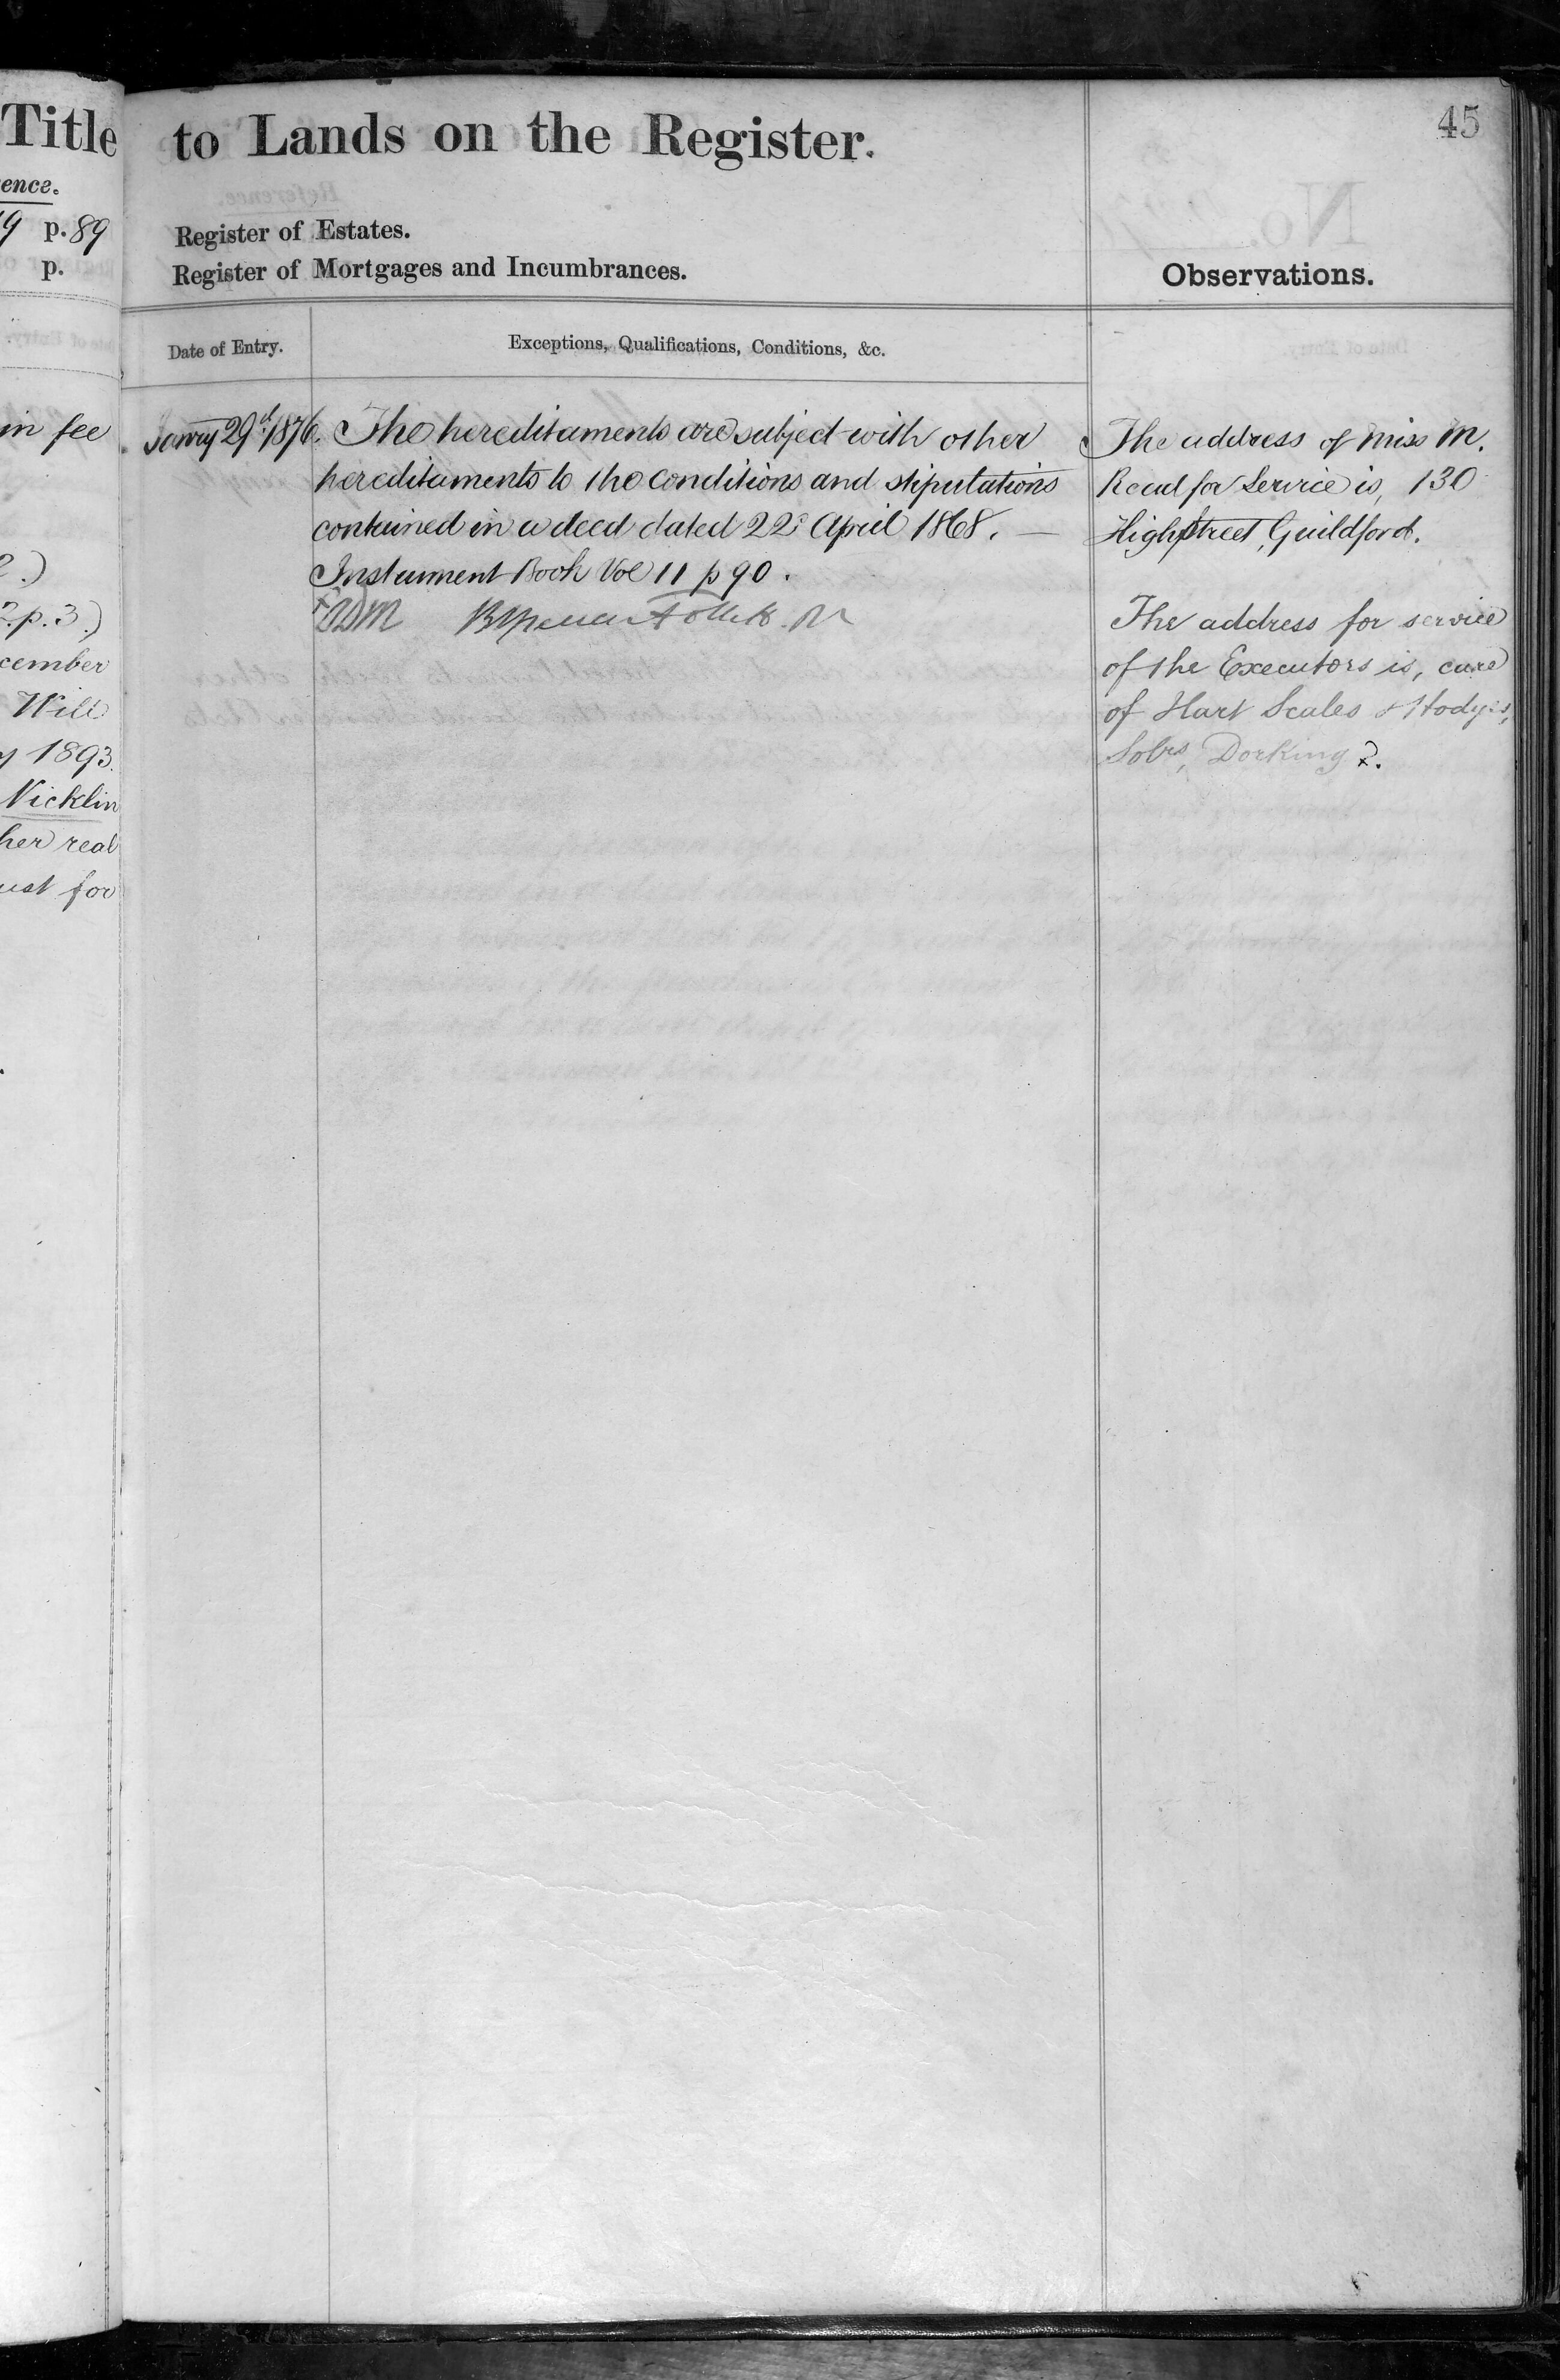 Title
ence.
9 p. 89
p.
in fee
2.)
2. p. 3.)
cember
Will
y 1893.
Nicklin
her real
ust for
45
to Lands on the Register.
Register of Estates.
Register of Mortgages and Incumbrances.
Observations.
Date of Entry.
Exceptions, Qualifications, Conditions, &c.
29th 1876. The hereditaments are subject with other
hereditaments to the conditions and stipulations
contained in a deed dated 22d April 1868. —
Instument Book Vol 11 p 90.
The address of Miss M.
Read for Service is, 130
High Street, Guildford.
The address for service
of the Executors is, care
of Hart Scales & Hodges,
Solrs, Dorking